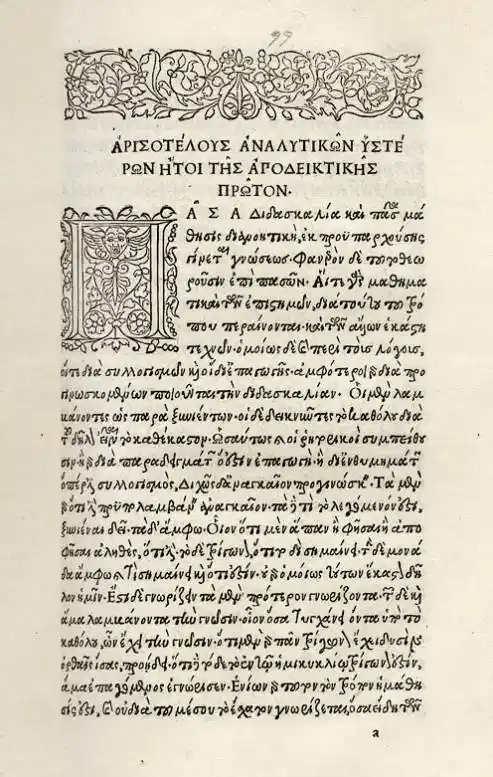 99
ἈΡΙΣΟΤΈΛΟΥΣ ἈΝΑΛΥΤΙΚΩ͂Ν ὙΣΤΈ
ΡΩΝ ἬΤΟΙ ΤΗ͂Σ ἈΠΟΔΕΙΚΤΙΚΗ͂Σ
ΠΡΩ͂ΤΟΝ·
Π Α͂ΣΑ Διδασκαλία καὶ πᾶσα μά
θησις διανοητικὴ, ἐκ προϋπαρχούσης
γίνεται γνώσεως. Φανερὸν δὲ τοῦτο θεω
ροῦσιν ἐπὶ πασῶν· Αἵ τε γὰρ μαθημα
τικαὶ τῶν ἐπιστημῶν, διὰ τούτου τοῦ τρό
που περαίνονται· καὶ τῶν ἄλλων ἑκάστη
τεχνῶν· ὁμοίως δὲ καὶ περὶ τοὺς λόγους,
οἵ τε διὰ συλλογισμῶν καὶ οἱ δὶ ἐπαγωγῆς· ἀμφότεροι γὰρ διὰ προ
γινωσκομένων ποιοῦνται τὴν διδασκαλίαν· Οἱ μὲν λαμ
βάνοντες ὡς παρὰ ξυνιέντων· οἱ δὲ δεικνῦντες τὸ καθόλου διὰ
τοῦ δῆλον εἶναι τὸ καθέκαστον. Ὡσαύτως καὶ οἱ ῥητορικοὶ συμπείθου
σιν· ἢ γὰρ διὰ παραδειγμάτων ὅ ἐστιν ἐπαγωγὴ· ἢ δι' ἐνθυμημάτων
ὅπερ ἐστὶ συλλογισμός, Διχῶς δ' ἀναγκαῖον προγινώσκειν· Τὰ μὲν
γὰρ ὅτι ἔστι προϋπολαμβάνειν ἀναγκαῖον· τὰ δὲ τί τὸ λεγόμενόν ἐστι,
ξυνιέναι δεῖ· τὰ δ' ἄμφω· Οἷον ὅτι μὲν ἅπαν ἢ φῆσαι ἢ ἀπο
φῆσαι ἀληθὲς, ὅτι ἔστι· τὸ δὲ τρίγωνον, ὅτι τοδὶ σημαίνει· τὴν δὲ μονά
δα ἄμφω καὶ τί σημαίνει καὶ ὅτι ἔστιν· οὐ γὰρ ὁμοίως τούτων ἕκαστον δῆ
λον ἡμῖν· Ἔστι δὲ γνωρίζειν τὰ μὲν πρότερον γνωρίζοντα· τῶν δὲ καὶ
ἅμα λαμβάνοντα τὴν γνῶσιν· οἷον ὅσα τυγχάνει ὄντα ὑπὸ τὸ
καθόλου, ὧν ἔχει τὴν γνῶσιν· ὅτι μὲν γὰρ πᾶν τρίγωνον ἔχει δυσὶν
ὀρθαῖς ἴσας, προῄδει· ὅτι δὲ τόδε τὸ ἐν τῷ ἡμικυκλίῳ τρίγωνόν ἐστιν,
ἅμα ἐπαγόμενος ἐγνώρισεν· Ἐνίων γὰρ τοῦτον τὸν τρόπον ἡ μάθη
σίς ἐστι, καὶ οὐ διὰ τοῦ μέσου τὸ ἔσχατον γνωρίζεται, ὅσα ἤδη τῶν
a